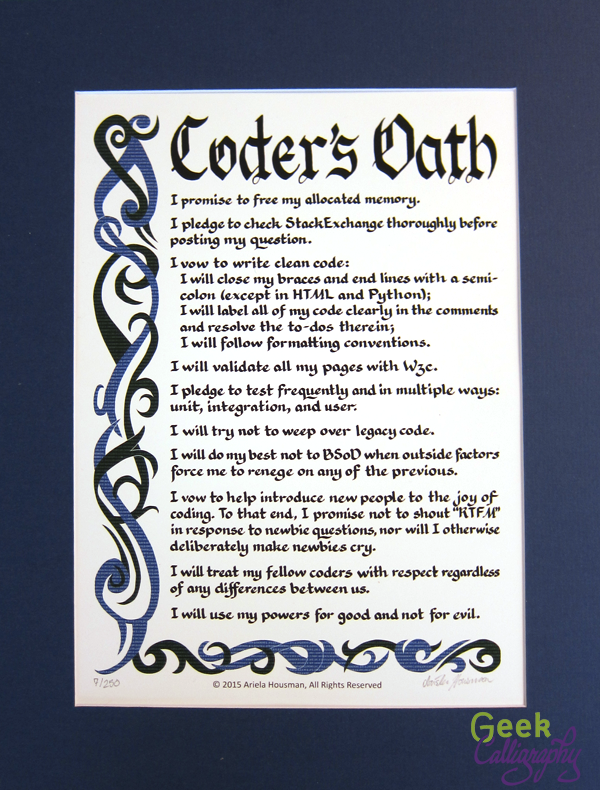 Coder's Oath
I promise to free my allocated memory.
I pledge to check StackExchange thoroughly before
posting my question.
I vow to write clean code:
I will close my braces and end lines with a semi-
colon (except in HTML and Python);
I will label all of my code clearly in the comments
and resolve the to-dos therein;
I will follow formatting conventions.
I will validate all my pages with W3c.
I pledge to test frequently and in multiple ways:
unit, integration, and user.
I will try not to weep over legacy code.
I will do my best not to BSoD when outside factors
force me to renege on any of the previous.
I vow to help introduce new people to the joy of
coding. To that end, I promise not to shout "RTFM"
in response to newbie questions, nor will I otherwise
deliberately make newbies cry.
I will treat my fellow coders with respect regardless
of any differences between us.
I will use my powers for good and not for evil.
7/250
© 2015 Ariela Housman, All Rights Reserved
Geek
Calligraphy